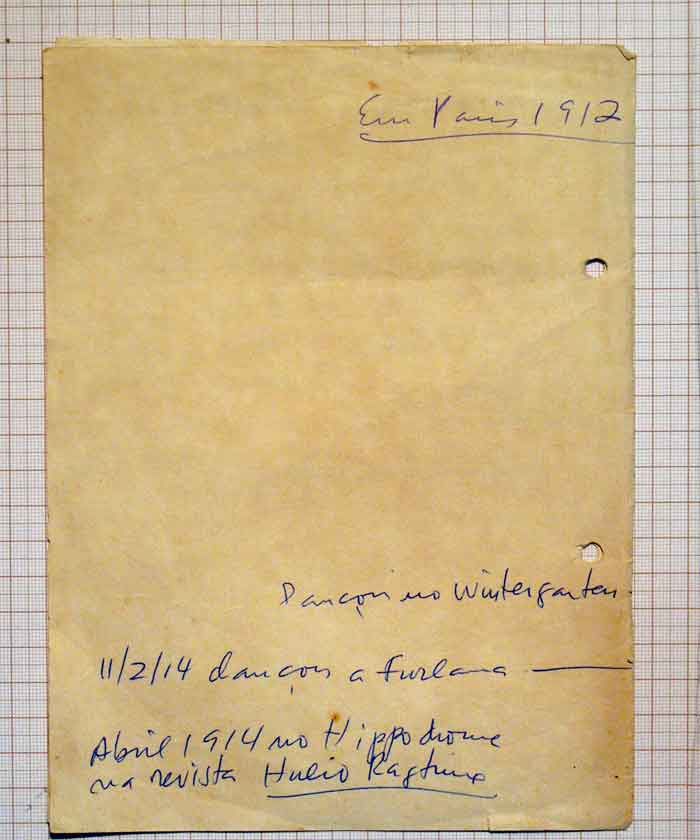 Em Paris 1912
Dançou no Wintergarten.
11/2/14 dançou a Furlana —
Abril 1914 no Hippodrome
na revista Hulio Ragtime